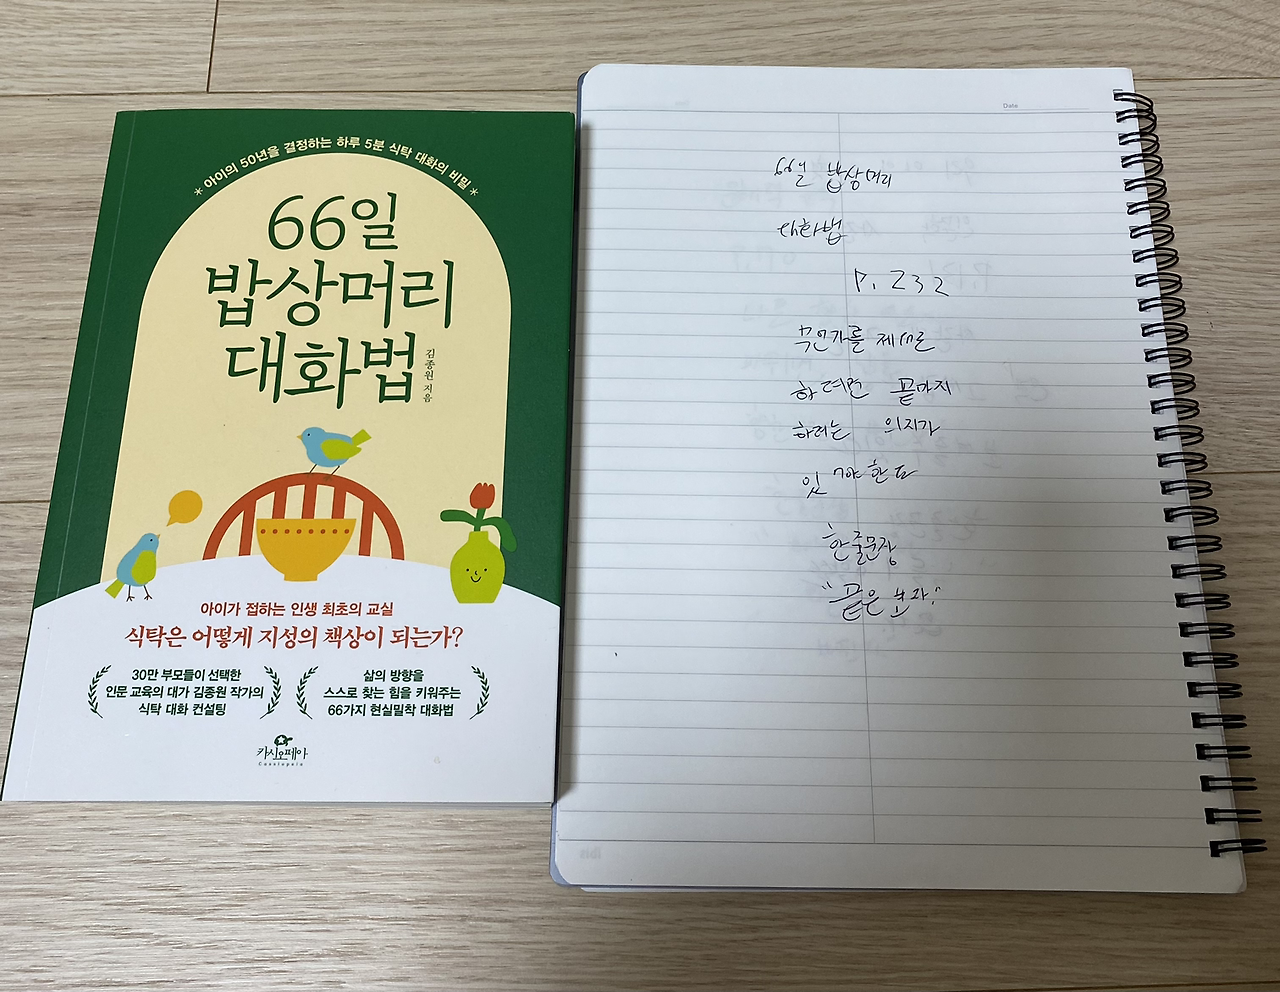 * 아이의 50년을 결정하는 하루 5분 식탁 대화의 비밀 *
66일
밥상머리
대화법
김종원 지음
아이가 접하는 인생 최초의 교실
식탁은 어떻게 지성의 책상이 되는가?
30만 부모들이 선택한
인문 교육의 대가 김종원 작가의
식탁 대화 컨설팅
삶의 방향을
스스로 찾는 힘을 키워주는
66가지 현실밀착 대화법
카시오페아
Cassiopeia
Date
66일 밥상머리
대화법
P. 232
무언가를 제대로
하려면 끝까지
하려는 의지가
있어야 한다
한줄문장
"끝은 보자."